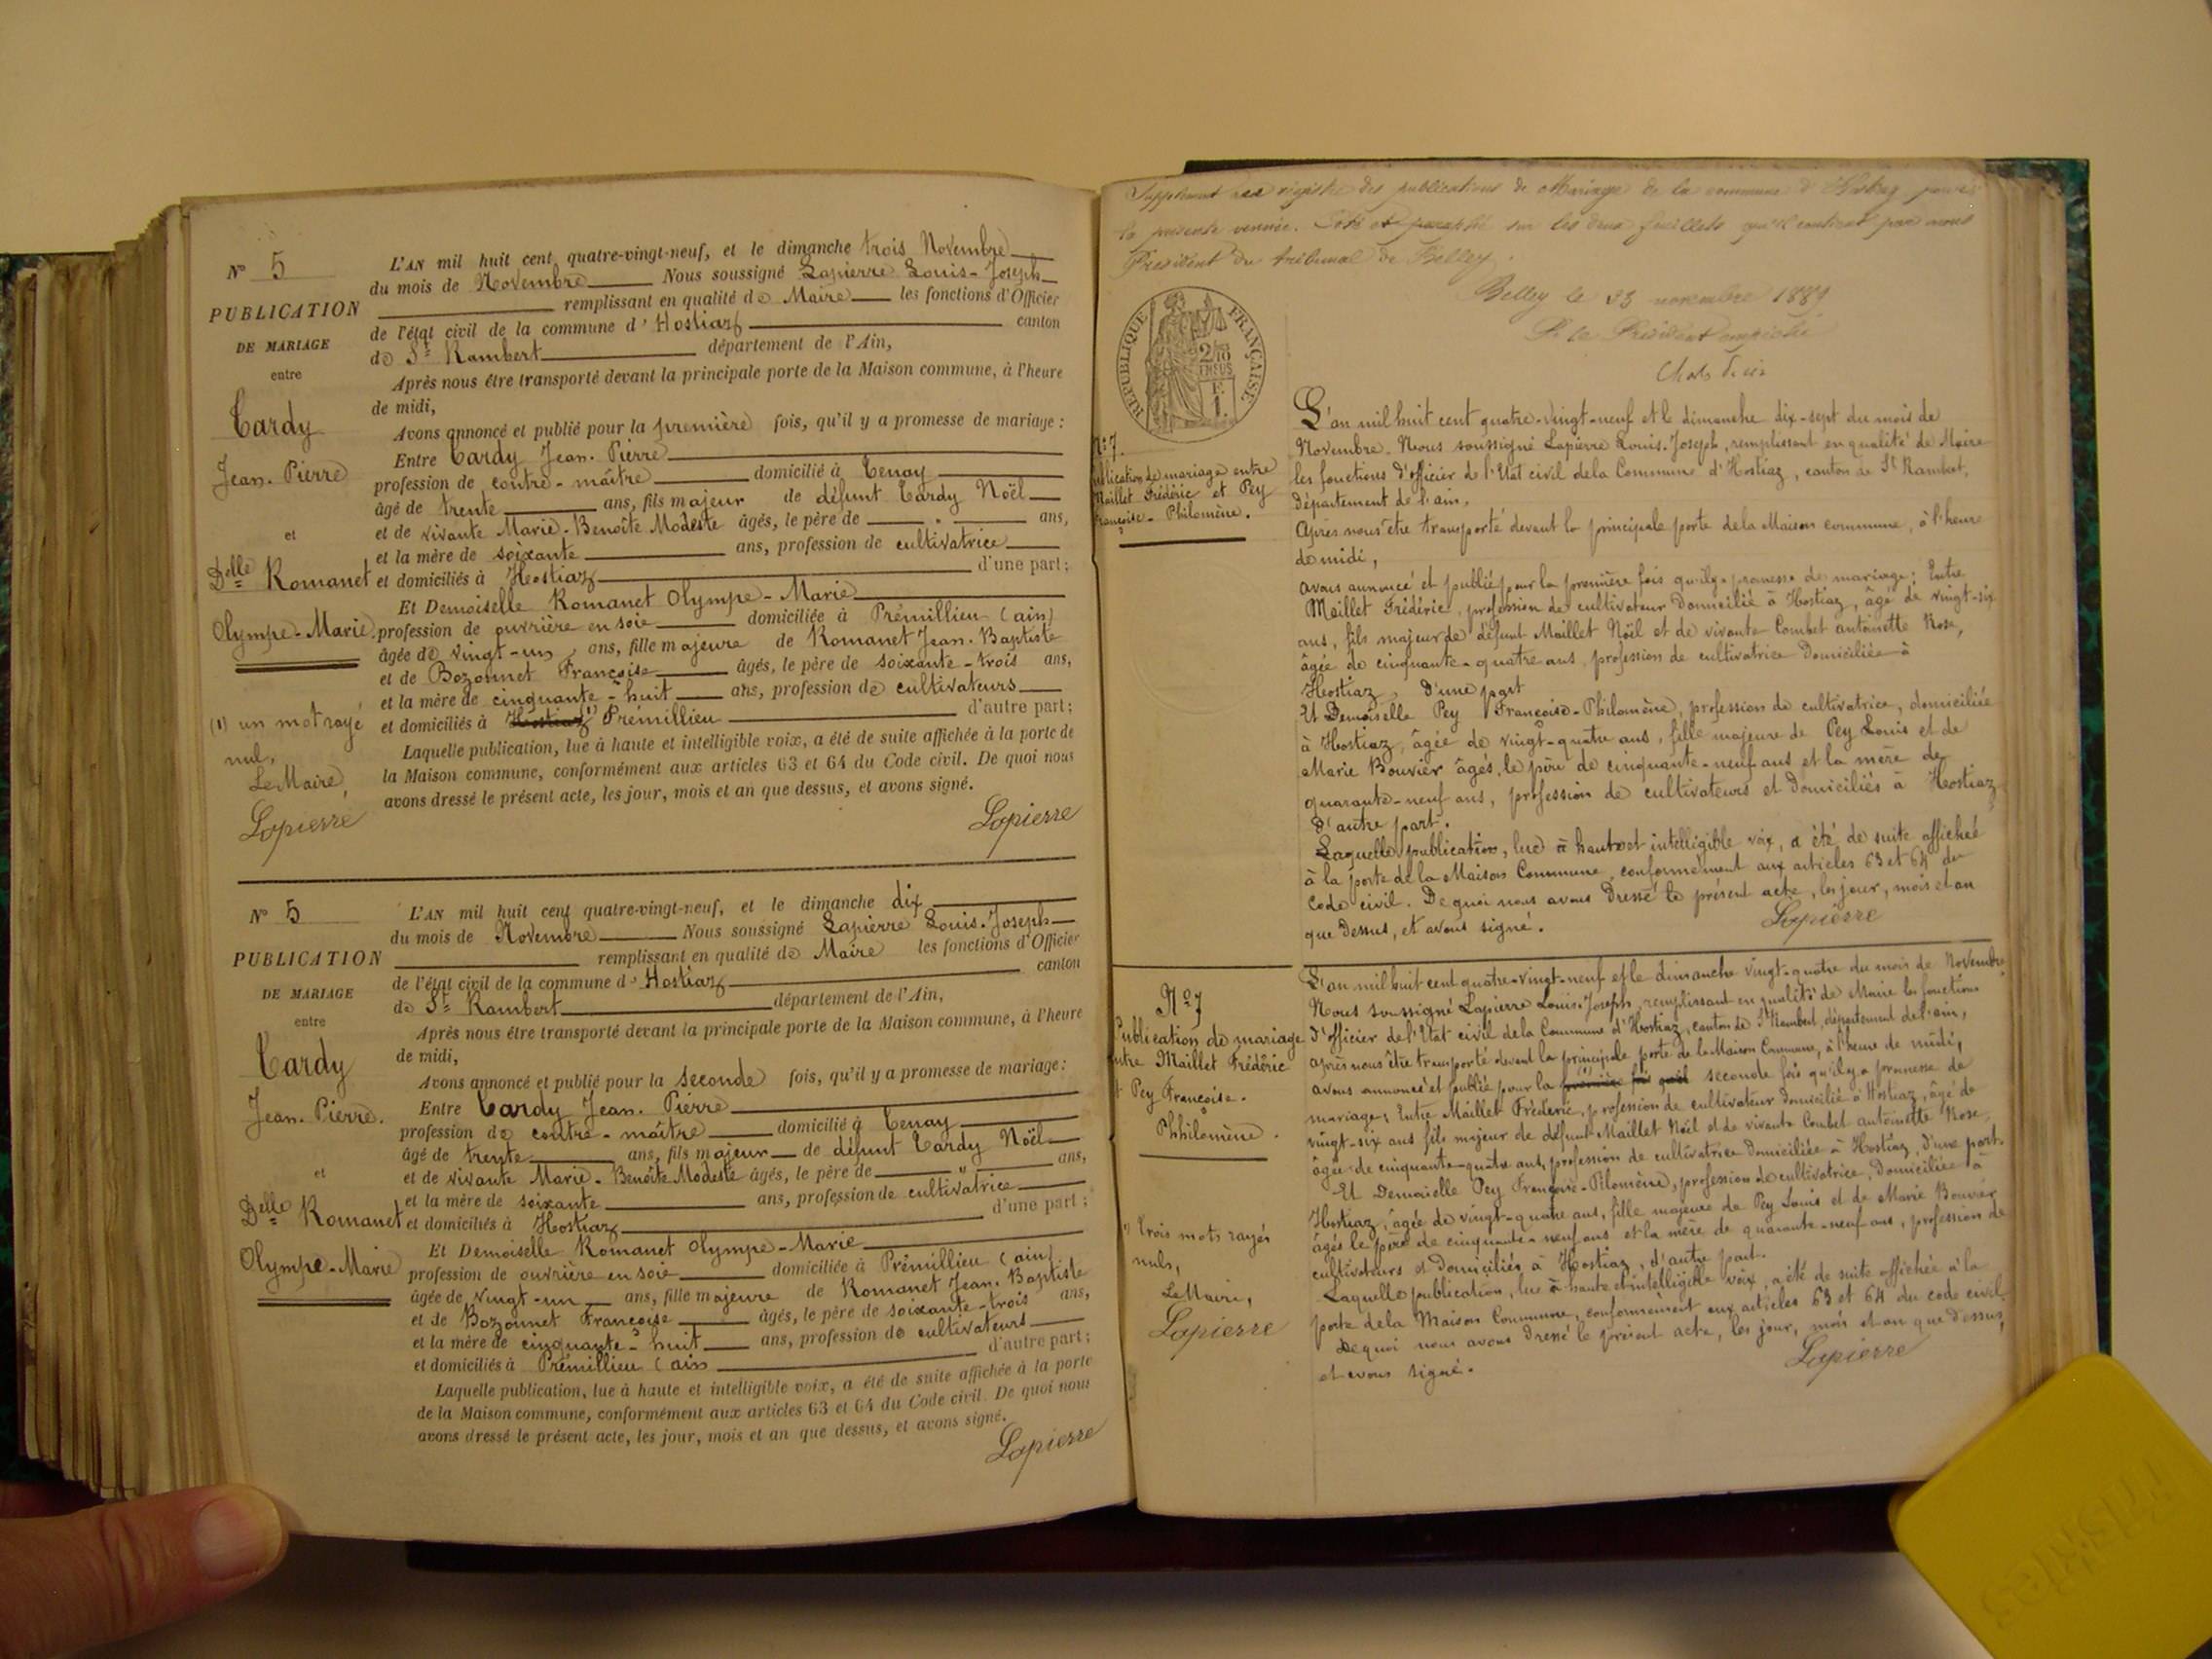 N° 5
PUBLICATION
DE MARIAGE
entre
Tardy
Jean. Pierre
et
Delle Romanet
Olympe-Marie.
(1) un mot rayé
nul,
Le Maire,
Lapierre
L'AN mil huit cent quatre-vingt-neuf, et le dimanche trois Novembre
du mois de Novembre Nous soussigné Lapierre Louis-Joseph
remplissant en qualité de Maire les fonctions d'Officier
de l'état civil de la commune d'Hostiaz canton
de St Rambert département de l'Ain,
Après nous être transporté devant la principale porte de la Maison commune, à l'heure
de midi,
Avons annoncé et publié pour la première fois, qu'il y a promesse de mariage :
Entre Tardy Jean. Pierre
profession de contre-maître domicilié à Tenay
âgé de trente ans, fils majeur de défunt Tardy Noël
et de vivante Marie-Benoîte Modeste âgés, le père de ans,
et la mère de soixante ans, profession de cultivatrice
et domiciliés à Hostiaz d'une part ;
Et Demoiselle Romanet Olympe-Marie
profession de ouvrière en soie domiciliée à Prémillieu (ain)
âgée de vingt-un ans, fille majeure de Romanet Jean-Baptiste
et de Bozonnet Françoise âgés, le père de soixante-trois ans,
et la mère de cinquante-huit ans, profession de cultivateurs
et domiciliés à Hostiaz (1) Prémillieu d'autre part ;
Laquelle publication, lue à haute et intelligible voix, a été de suite affichée à la porte de
la Maison commune, conformément aux articles 63 et 64 du Code civil. De quoi nous
avons dressé le présent acte, les jour, mois et an que dessus, et avons signé.
Lapierre
N° 5
PUBLICATION
DE MARIAGE
entre
Tardy
Jean. Pierre.
et
Delle Romanet
Olympe-Marie
L'AN mil huit cent quatre-vingt-neuf, et le dimanche dix
du mois de Novembre Nous soussigné Lapierre Louis-Joseph
remplissant en qualité de Maire les fonctions d'Officier
de l'état civil de la commune d'Hostiaz canton
de St Rambert département de l'Ain,
Après nous être transporté devant la principale porte de la Maison commune, à l'heure
de midi,
Avons annoncé et publié pour la seconde fois, qu'il y a promesse de mariage :
Entre Tardy Jean. Pierre
profession de contre-maître domicilié à Tenay
âgé de trente ans, fils majeur de défunt Tardy Noël
et de vivante Marie-Benoîte Modeste âgés, le père de " ans,
et la mère de soixante ans, profession de cultivatrice
et domiciliés à Hostiaz d'une part ;
Et Demoiselle Romanet Olympe-Marie
profession de ouvrière en soie domiciliée à Prémillieu (ain)
âgée de vingt-un ans, fille majeure de Romanet Jean-Baptiste
et de Bozonnet Françoise âgés, le père de soixante-trois ans,
et la mère de cinquante-huit ans, profession de cultivateurs
et domiciliés à Prémillieu (ain d'autre part ;
Laquelle publication, lue à haute et intelligible voix, a été de suite affichée à la porte
de la Maison commune, conformément aux articles 63 et 64 du Code civil. De quoi nous
avons dressé le présent acte, les jour, mois et an que dessus, et avons signé.
Lapierre
Supplément au registre des publications de Mariage de la commune d'Hostiaz pour
la présente année. Coté et paraphé sur les deux feuillets qu'il contient par nous
Président du tribunal de Belley.
Belley le 23 novembre 1889
P. le Président empêché
RÉPUBLIQUE FRANÇAISE
2/10 EN SUS
F. 1.
N° 7.
Publication de mariage entre
Maillet Frédéric et Pey
Françoise-Philomène.
L'an mil huit cent quatre-vingt-neuf et le dimanche dix-sept du mois de
Novembre. Nous soussigné Lapierre Louis-Joseph, remplissant en qualité de Maire
les fonctions d'officier de l'Etat civil de la Commune d'Hostiaz, canton de St Rambert,
département de l'ain,
Après nous être transporté devant la principale porte de la Maison commune, à l'heure
de midi,
avons annoncé et publié pour la première fois qu'il y a promesse de mariage ; Entre
Maillet Frédéric, profession de cultivateur domicilié à Hostiaz, âgé de vingt-six
ans, fils majeur de défunt Maillet Noël et de vivante Combet antoinette Rose,
âgée de cinquante-quatre ans, profession de cultivatrice Domiciliée à
Hostiaz, d'une part
Et Demoiselle Pey Françoise-Philomène, profession de cultivatrice, domiciliée
à Hostiaz, âgée de vingt-quatre ans, fille majeure de Pey Louis et de
Marie Bouvier âgés, le père de cinquante-neuf ans et la mère de
quarante-neuf ans, profession de cultivateurs et Domiciliés à Hostiaz
d'autre part.
Laquelle publication, lue à haute et intelligible voix, a été de suite affichée
à la porte de la Maison Commune, conformément aux articles 63 et 64 du
Code civil. De quoi nous avons Dressé le présent acte, les jour, mois et an
que Dessus, et avons signé.
Lapierre
N° 7
Publication de mariage
entre Maillet Frédéric
et Pey Françoise.
Philomène.
(1) trois mots rayés
nuls,
Le Maire,
Lapierre
L'an mil huit cent quatre-vingt-neuf et le dimanche vingt-quatre du mois de Novembre
Nous soussigné Lapierre Louis-Joseph, remplissant en qualité de Maire les fonctions
d'officier de l'Etat civil de la Commune d'Hostiaz, canton de St Rambert, département de l'ain,
après nous être transporté devant la principale porte de la Maison Commune, à l'heure de midi,
avons annoncé et publié pour la première fois qu'il seconde fois qu'il y a promesse de
mariage ; Entre Maillet Frédéric, profession de cultivateur domicilié à Hostiaz, âgé de
vingt-six ans fils majeur de défunt Maillet Noël et de vivante Combet antoinette Rose,
âgée de cinquante-quatre ans, profession de cultivatrice Domiciliée à Hostiaz, d'une part.
Et Demoiselle Pey Françoise-Philomène, profession de cultivatrice, Domiciliée à
Hostiaz, âgée de vingt-quatre ans, fille majeure de Pey Louis et de Marie Bouvier
âgés le père de cinquante-neuf ans et la mère de quarante-neuf ans, profession de
cultivateurs et Domiciliés à Hostiaz, d'autre part.
Laquelle publication, lue à haute et intelligible voix, a été de suite affichée à la
porte de la Maison Commune, conformément aux articles 63 et 64 du code civil
De quoi nous avons Dressé le présent acte, les jour, mois et an que Dessus,
et avons signé.
Lapierre